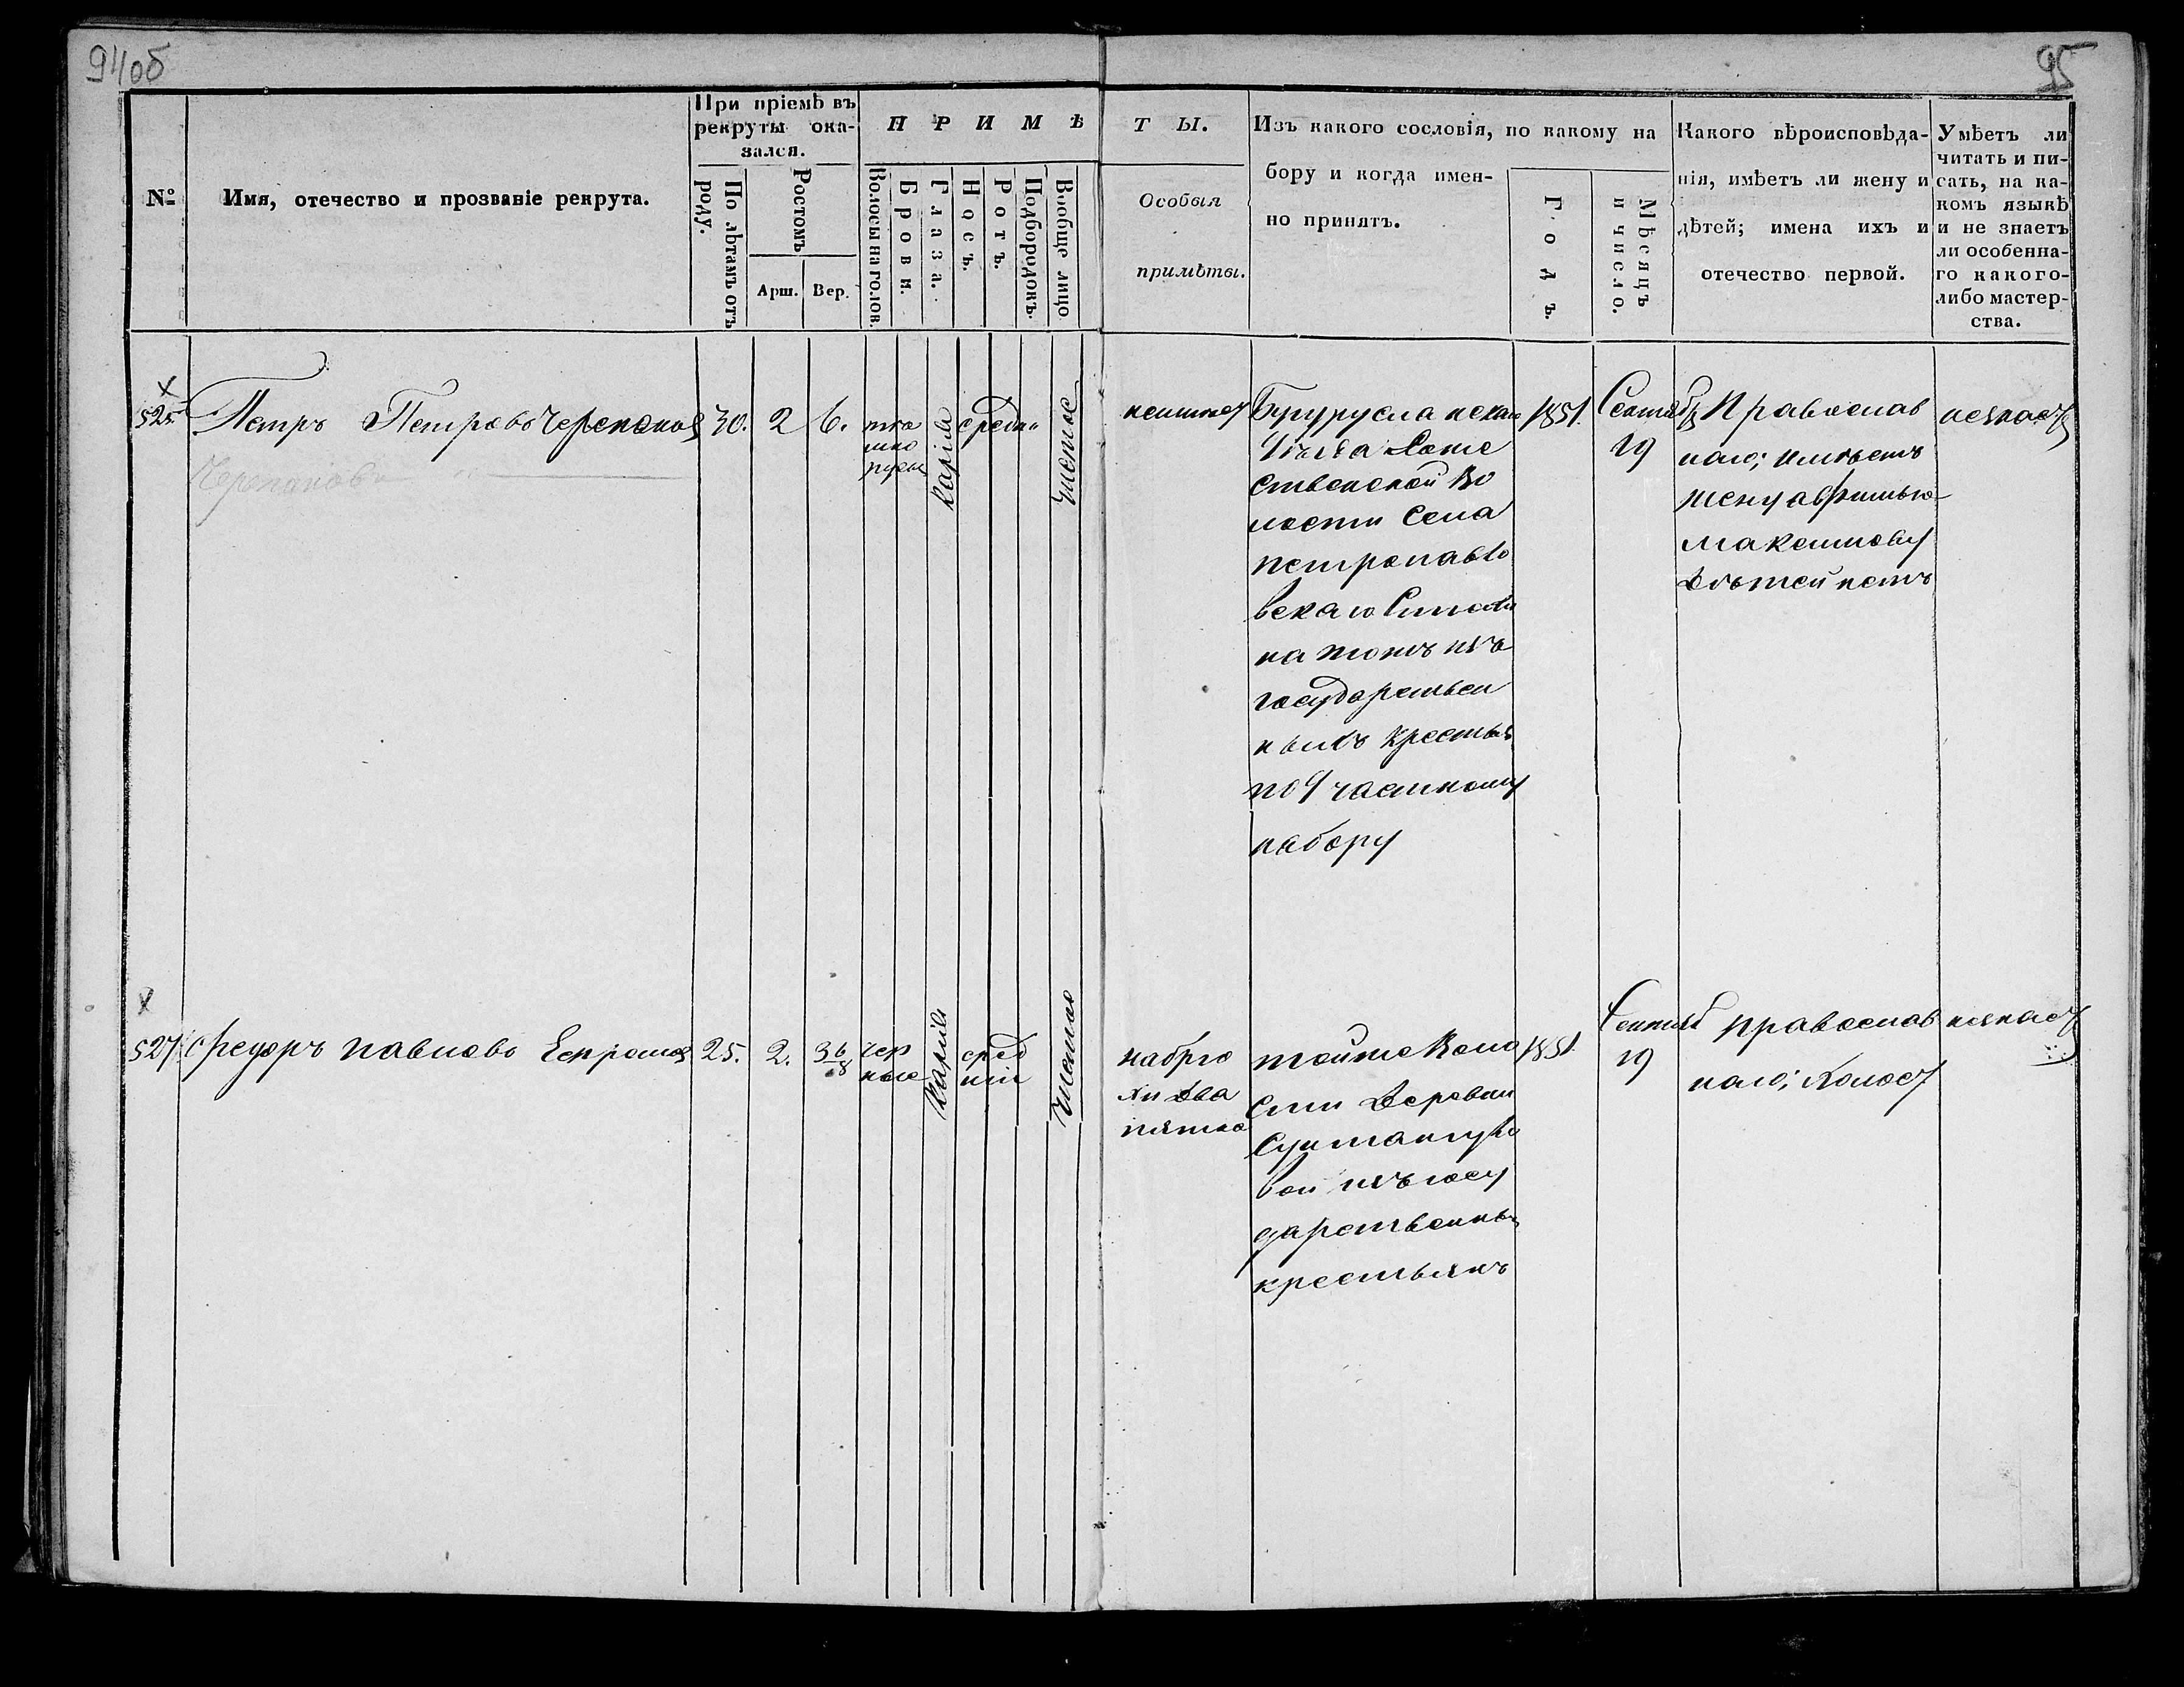 94об
95
№
Имя, отечество и прозваніе рекрута.
При пріемѣ въ
рекруты ока-
зался.
По лѣтамъ отъ
роду.
Ростомъ
Арш.
Вер.
П Р И М Ѣ
Волосы на голов.
Брови.
Глаза.
Носъ.
Ротъ.
Подбородокъ.
Вообще лицо
Т Ы.
Особыя
примѣты.
Изъ какого сословія, по какому на
бору и когда имен-
но принятъ.
Годъ.
Мѣсяцъ
и число.
Какого вѣроисповѣда-
нія, имѣетъ ли жену и
дѣтей; имена ихъ и
отечество первой.
Умѣетъ ли
читать и пи-
сать, на ка-
комъ языкѣ
и не знаетъ
ли особенна-
го какого-
либо мастер-
ства.
х
525.
Петръ Петровъ Черепановъ
Черепановъ
30.
2
6.
тем
но
русы
Каріе
средн
чистое
неимѣет
Бугурусланскаго
Уѣзда
ственской Во
лости Села
петропавло
вскаго
на тожъ изъ
государствен
ныхъ крестья
по 9 частному
набору
1851.
Сентябр
19
Православ
наго; имѣетъ
жену
Максимову
дѣтей нетъ
незнаетъ
х
527.
Федоръ павловъ
25.
2.
3 6/8
чер
ные
Каріе
сред
ній
чистое
набрю
хи два
пятна
тойже Воло
сти деревни
Султангуло
вой изъ госу
дарственны
крестьянъ
1851.
Сентяб
19
православ
наго; Холост
незнаетъ